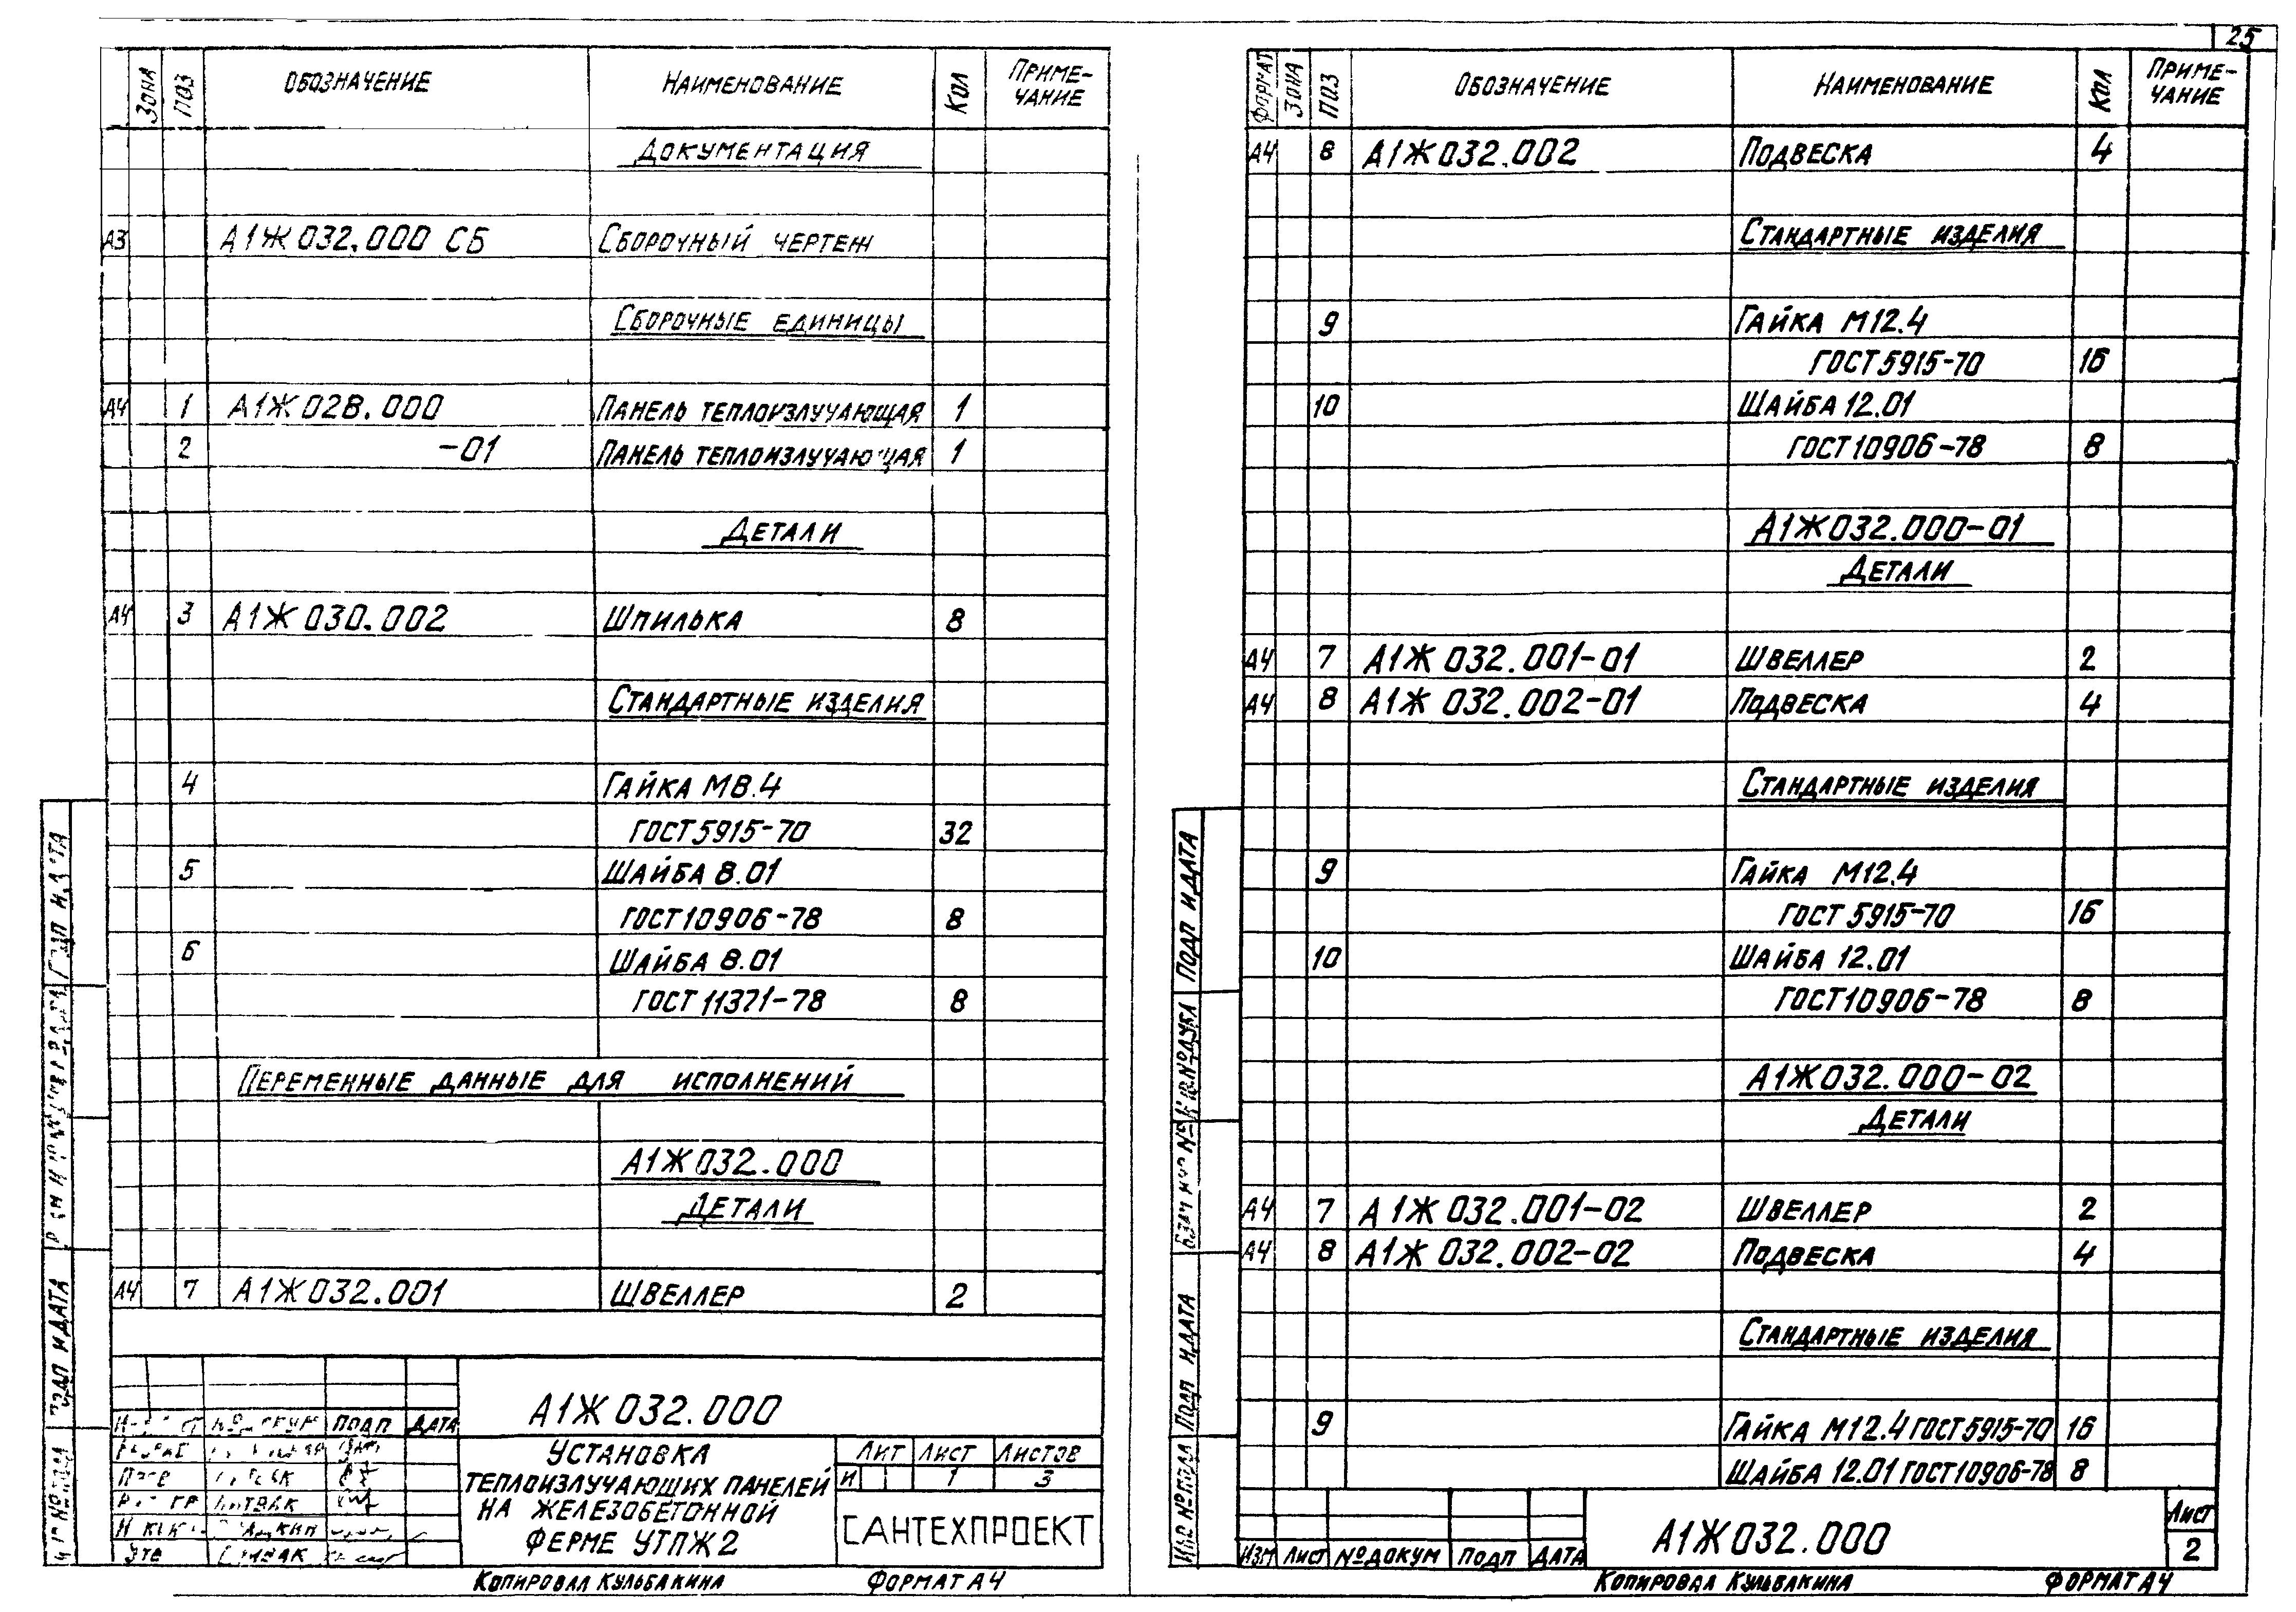 25
ЗОНА ПОЗ ОБОЗНАЧЕНИЕ НАИМЕНОВАНИЕ КОЛ ПРИМЕ-
ЧАНИЕ
ДОКУМЕНТАЦИЯ
А3 А1Ж032.000 СБ СБОРОЧНЫЙ ЧЕРТЕЖ
СБОРОЧНЫЕ ЕДИНИЦЫ
А4 1 А1Ж028.000 ПАНЕЛЬ ТЕПЛОИЗЛУЧАЮЩАЯ 1
2 -01 ПАНЕЛЬ ТЕПЛОИЗЛУЧАЮЩАЯ 1
ДЕТАЛИ
А4 3 А1Ж030.002 ШПИЛЬКА 8
СТАНДАРТНЫЕ ИЗДЕЛИЯ
4 ГАЙКА М8.4
ГОСТ5915-70 32
5 ШАЙБА 8.01
ГОСТ10906-78 8
6 ШАЙБА 8.01
ГОСТ 11371-78 8
ПЕРЕМЕННЫЕ ДАННЫЕ ДЛЯ ИСПОЛНЕНИЙ
А1Ж032.000
ДЕТАЛИ
А4 7 А1Ж032.001 ШВЕЛЛЕР 2
ПОДП ДАТА
А1Ж032.000
УСТАНОВКА
ТЕПЛОИЗЛУЧАЮЩИХ ПАНЕЛЕЙ
НА ЖЕЛЕЗОБЕТОННОЙ
ФЕРМЕ УТПЖ2
ЛИТ ЛИСТ ЛИСТОВ
И 1 3
САНТЕХПРОЕКТ
КОПИРОВАЛ КУЛЬБАКИНА ФОРМАТ А4
ФОРМАТ ЗОНА ПОЗ ОБОЗНАЧЕНИЕ НАИМЕНОВАНИЕ КОЛ ПРИМЕ-
ЧАНИЕ
А4 8 А1Ж032.002 ПОДВЕСКА 4
СТАНДАРТНЫЕ ИЗДЕЛИЯ
9 ГАЙКА М12.4
ГОСТ5915-70 16
10 ШАЙБА 12.01
ГОСТ10906-78 8
А1Ж032.000-01
ДЕТАЛИ
А4 7 А1Ж032.001-01 ШВЕЛЛЕР 2
А4 8 А1Ж032.002-01 ПОДВЕСКА 4
СТАНДАРТНЫЕ ИЗДЕЛИЯ
9 ГАЙКА М12.4
ГОСТ 5915-70 16
10 ШАЙБА 12.01
ГОСТ10906-78 8
А1Ж032.000-02
ДЕТАЛИ
А4 7 А1Ж032.001-02 ШВЕЛЛЕР 2
А4 8 А1Ж032.002-02 ПОДВЕСКА 4
СТАНДАРТНЫЕ ИЗДЕЛИЯ
9 ГАЙКА М12.4 ГОСТ5915-70 16
ШАЙБА 12.01 ГОСТ10906-78 8
ИЗМ ЛИСТ №ДОКУМ ПОДП ДАТА
А1Ж032.000
ЛИСТ
2
КОПИРОВАЛ КУЛЬБАКИНА ФОРМАТ А4
ПОДП И ДАТА
ПОДП И ДАТА